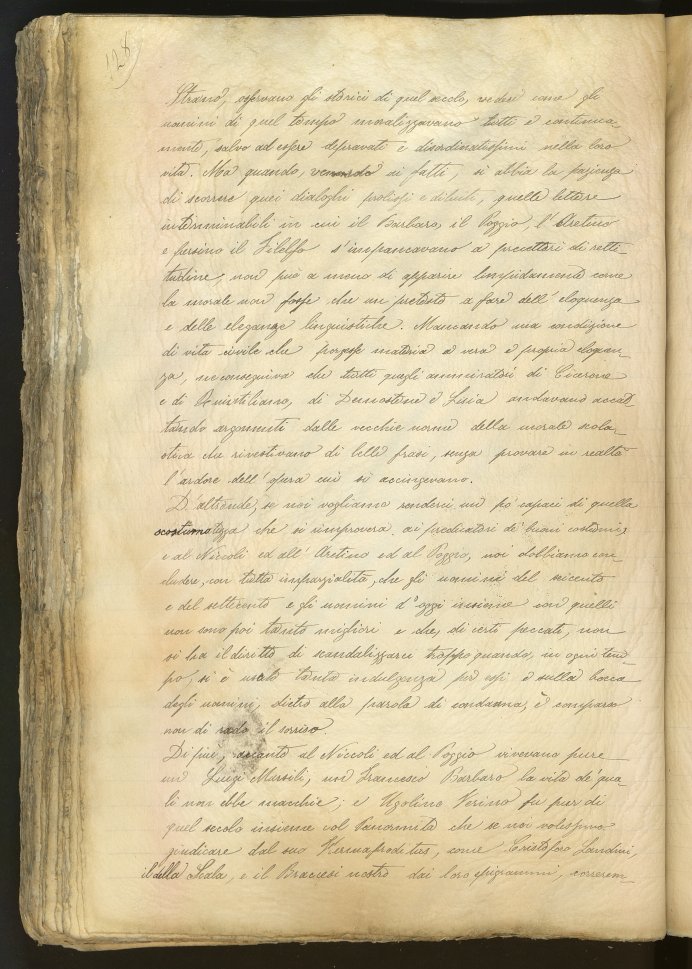 128
Strano, osservano gli storici di quel secolo, vedesi come gli
uomini di quel tempo moralizzavano tutti e continua-
mente, salvo ad essere depravati e disordinatissimi nella loro
vita. Ma quando, venendo ai fatti, si abbia la pazienza
di scorrere quei dialoghi prolissi e diluiti, quelle lettere
interminabili in cui il Barbaro, il Poggio, l'Aretino
e persino il Filelfo s'impancavano a precettori di retti-
tudine, non può a meno di apparire limpidamente come
la morale non fosse che un pretesto a fare dell'eloquenza
e delle eleganze linguistiche. Mancando una condizione
di vita civile che porgesse materia a vera e propria eloquen-
za, ne conseguiva che tutti quegli ammiratori di Cicerone
e di Quintiliano, di Demostene e Lisia andavano accat-
tando argomenti dalle vecchie norme della morale scola-
stica che rivestivano di belle frasi, senza provare in realtà
l'ardore dell'opera cui si accingevano.
D'altronde, se noi vogliamo renderci un pò capaci di quella
scostumatezza che si rimprovera ai predicatori de' buoni costumi,
e al Niccoli ed all'Aretino ed al Poggio, noi dobbiamo con-
cludere, con tutta imparzialità, che gli uomini del seicento
e del settecento e gli uomini d'oggi insieme con quelli
non sono poi tanto migliori e che, di certi peccati, non
si ha il diritto di scandalizzarci troppo quando, in ogni tem-
po, si è usato tanta indulgenza per essi e sulla bocca
degli uomini, dietro alla parola di condanna, è comparso
non di rado il sorriso.
Di più, accanto al Niccoli ed al Poggio vivevano pure
un Luigi Marsili, un Francesco Barbaro la vita de' qua-
li non ebbe macchie; e Ugolino Verino fu pur di
quel secolo insieme col Panormita che se noi volessimo
giudicare dal suo Hermaphroditus, come Cristoforo Landini
il della Scala, e il Braccesi nostro dai loro epigrammi, correrem-